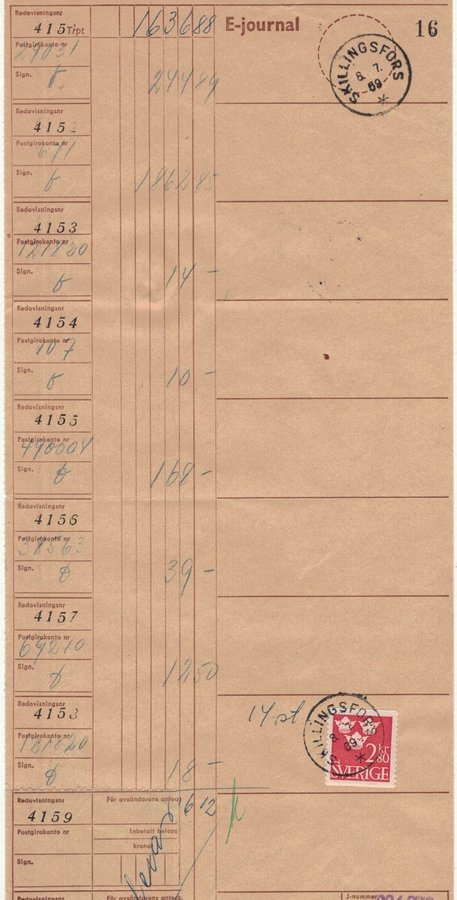 Redovisningsnr
415 Trpt 163688 E-journal 16
Postgirokonto nr
SKILLINGSFORS
8. 7.
69
Sign. 244 89
Redovisningsnr
4152
Postgirokonto nr
Sign. 186285
Redovisningsnr
4153
Postgirokonto nr
121820
Sign. 14 –
Redovisningsnr
4154
Postgirokonto nr
107
Sign. 10 –
Redovisningsnr
4155
Postgirokonto nr
490004
Sign. 168 –
Redovisningsnr
4156
Postgirokonto nr
38563
Sign. 39 –
Redovisningsnr
4157
Postgirokonto nr
69210
Sign. 1250
Redovisningsnr
4158
14 st
SKILLINGSFORS
69
Postgirokonto nr
2 kr 80
SVERIGE
Sign. 18 –
Redovisningsnr
För avsändarens anteckn
612
4159
Postgirokonto nr
Inbetalt belopp
kronor
Sign.
Redovisningsnr
För avsändarens anteckn
J-nummer